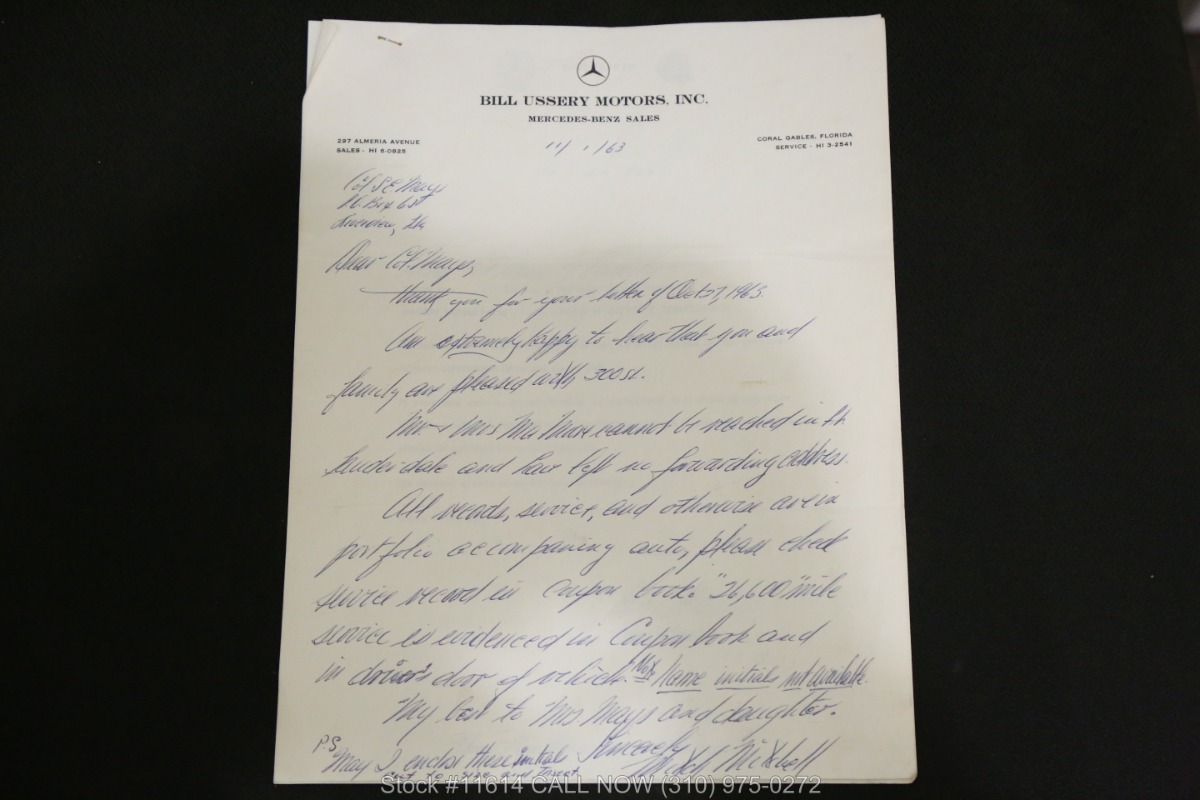 BILL USSERY MOTORS, INC.
MERCEDES-BENZ SALES
297 ALMERIA AVENUE
SALES - HI 6-0825
CORAL GABLES, FLORIDA
SERVICE - HI 3-2541
11/1/63
Col S E Mays
Box
Dear Col. Mays,
Thank you for your letter of Oct 27, 1963.
Am extremely happy to hear that you and
family are pleased with 300SL.
Mr & Mrs cannot be reached in Ft
Lauderdale and have left no forwarding address.
All records, service, and otherwise are in
portfolio accompaning auto, please check
service record in Coupon book. "26,600" mile
service is evidenced in Coupon book and
in driver's door of vehicle. Note Name initials not available.
My best to Mrs Mays and daughter.
Sincerely
Mitchell
P.S.
May I enclose these initials
Stock #11614 CALL NOW (310) 975-0272